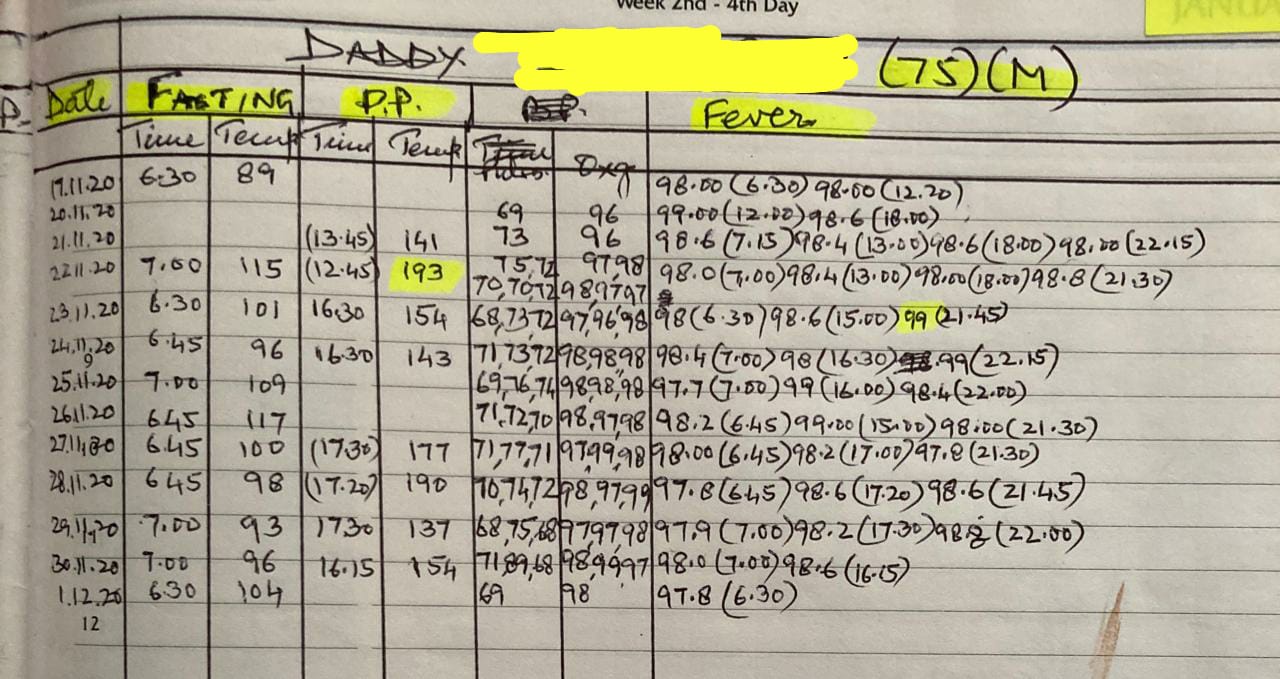 Week 2nd - 4th Day
JANUA
DADDY (75)(M)
Date FASTING P.P. Fever
Time Temp Time Temp Oxg
19.11.20 6.30 89 98.00 (6.30) 98.00 (12.20)
20.11.20 69 96 99.00 (12.00) 98.6 (18.00)
21.11.20 (13.45) 141 73 96 98.6 (7.15) 98.4 (13.00) 98.6 (18.00) 98.00 (22.15)
22.11.20 7.00 115 (12.45) 193 75,72 97,98 98.0 (7.00) 98.4 (13.00) 98.00 (18.00) 98.8 (21.30)
70,70,72 98,97,97
23.11.20 6.30 101 16.30 154 68,73,72 97,96,98 98 (6.30) 98.6 (15.00) 99 (21.45)
24.11.20 6.45 96 16.30 143 71,73,72 98,98,98 98.4 (7.00) 98 (16.30) 99 (22.15)
9
25.11.20 7.00 109 69,76,74 98,98,98 97.7 (7.00) 99 (16.00) 98.4 (22.00)
26.11.20 6.45 117 71,72,70 98,97,98 98.2 (6.45) 99.00 (15.00) 98.00 (21.30)
27.11.20 6.45 100 (17.30) 177 71,77,71 97,99,98 98.00 (6.45) 98.2 (17.00) 97.8 (21.30)
28.11.20 6.45 98 (17.20) 190 70,74,72 98,97,99 97.8 (6.45) 98.6 (17.20) 98.6 (21.45)
29.11.20 7.00 93 17.30 137 68,75,68 97,97,98 97.9 (7.00) 98.2 (17.30) (22.00)
30.11.20 7.00 96 16.15 154 71,89,68 98,99,97 98.0 (7.00) 98.6 (16.15)
1.12.20 6.30 104 69 98 97.8 (6.30)
12